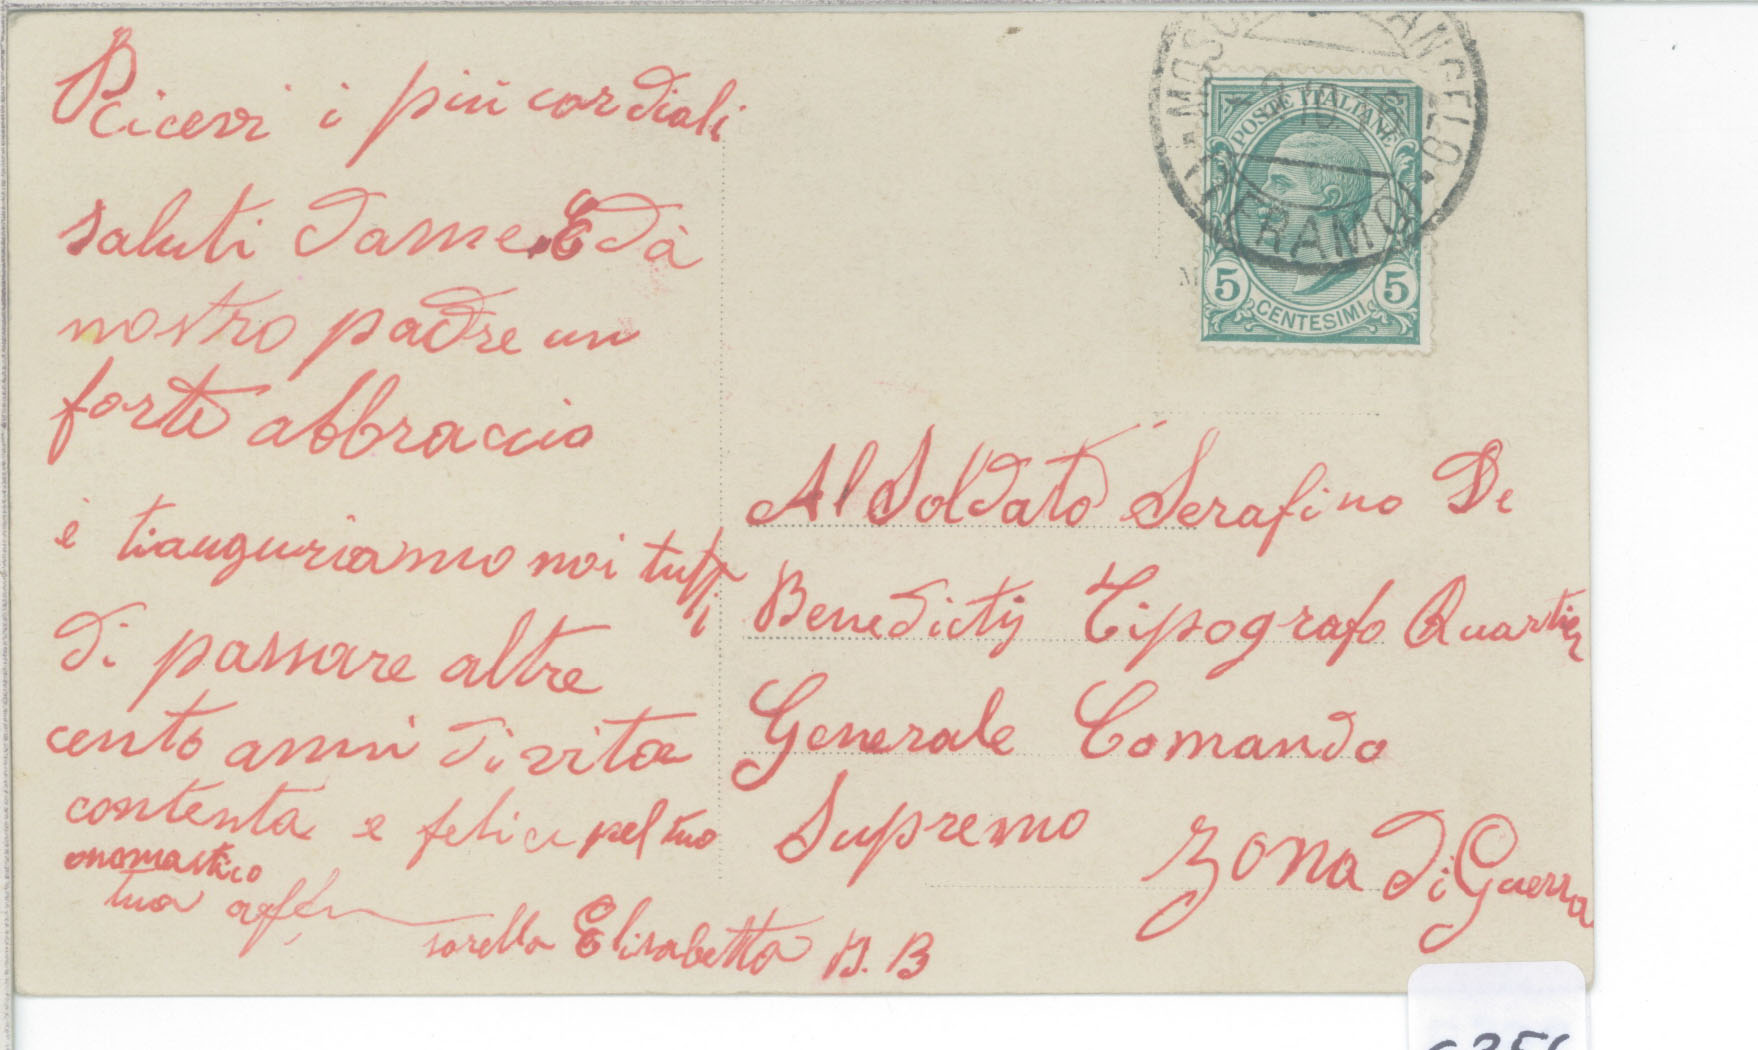 Ricievi i più cordiali
saluti dame E dà
nostro padre un
forte abbraccio
è tiauguriamo noi tutti
di passare altre
cento anni di vita
contenta e felice pel tuo
onomastico
tua aff
sorella Elisabetta B. B
POSTE ITALIANE
5 5
CENTESIMI
ANGELO
TERAMO
Al Soldato Serafino De
Benedictij Tipografo Quartier
Generale Comando
Supremo
Zona di Guerra